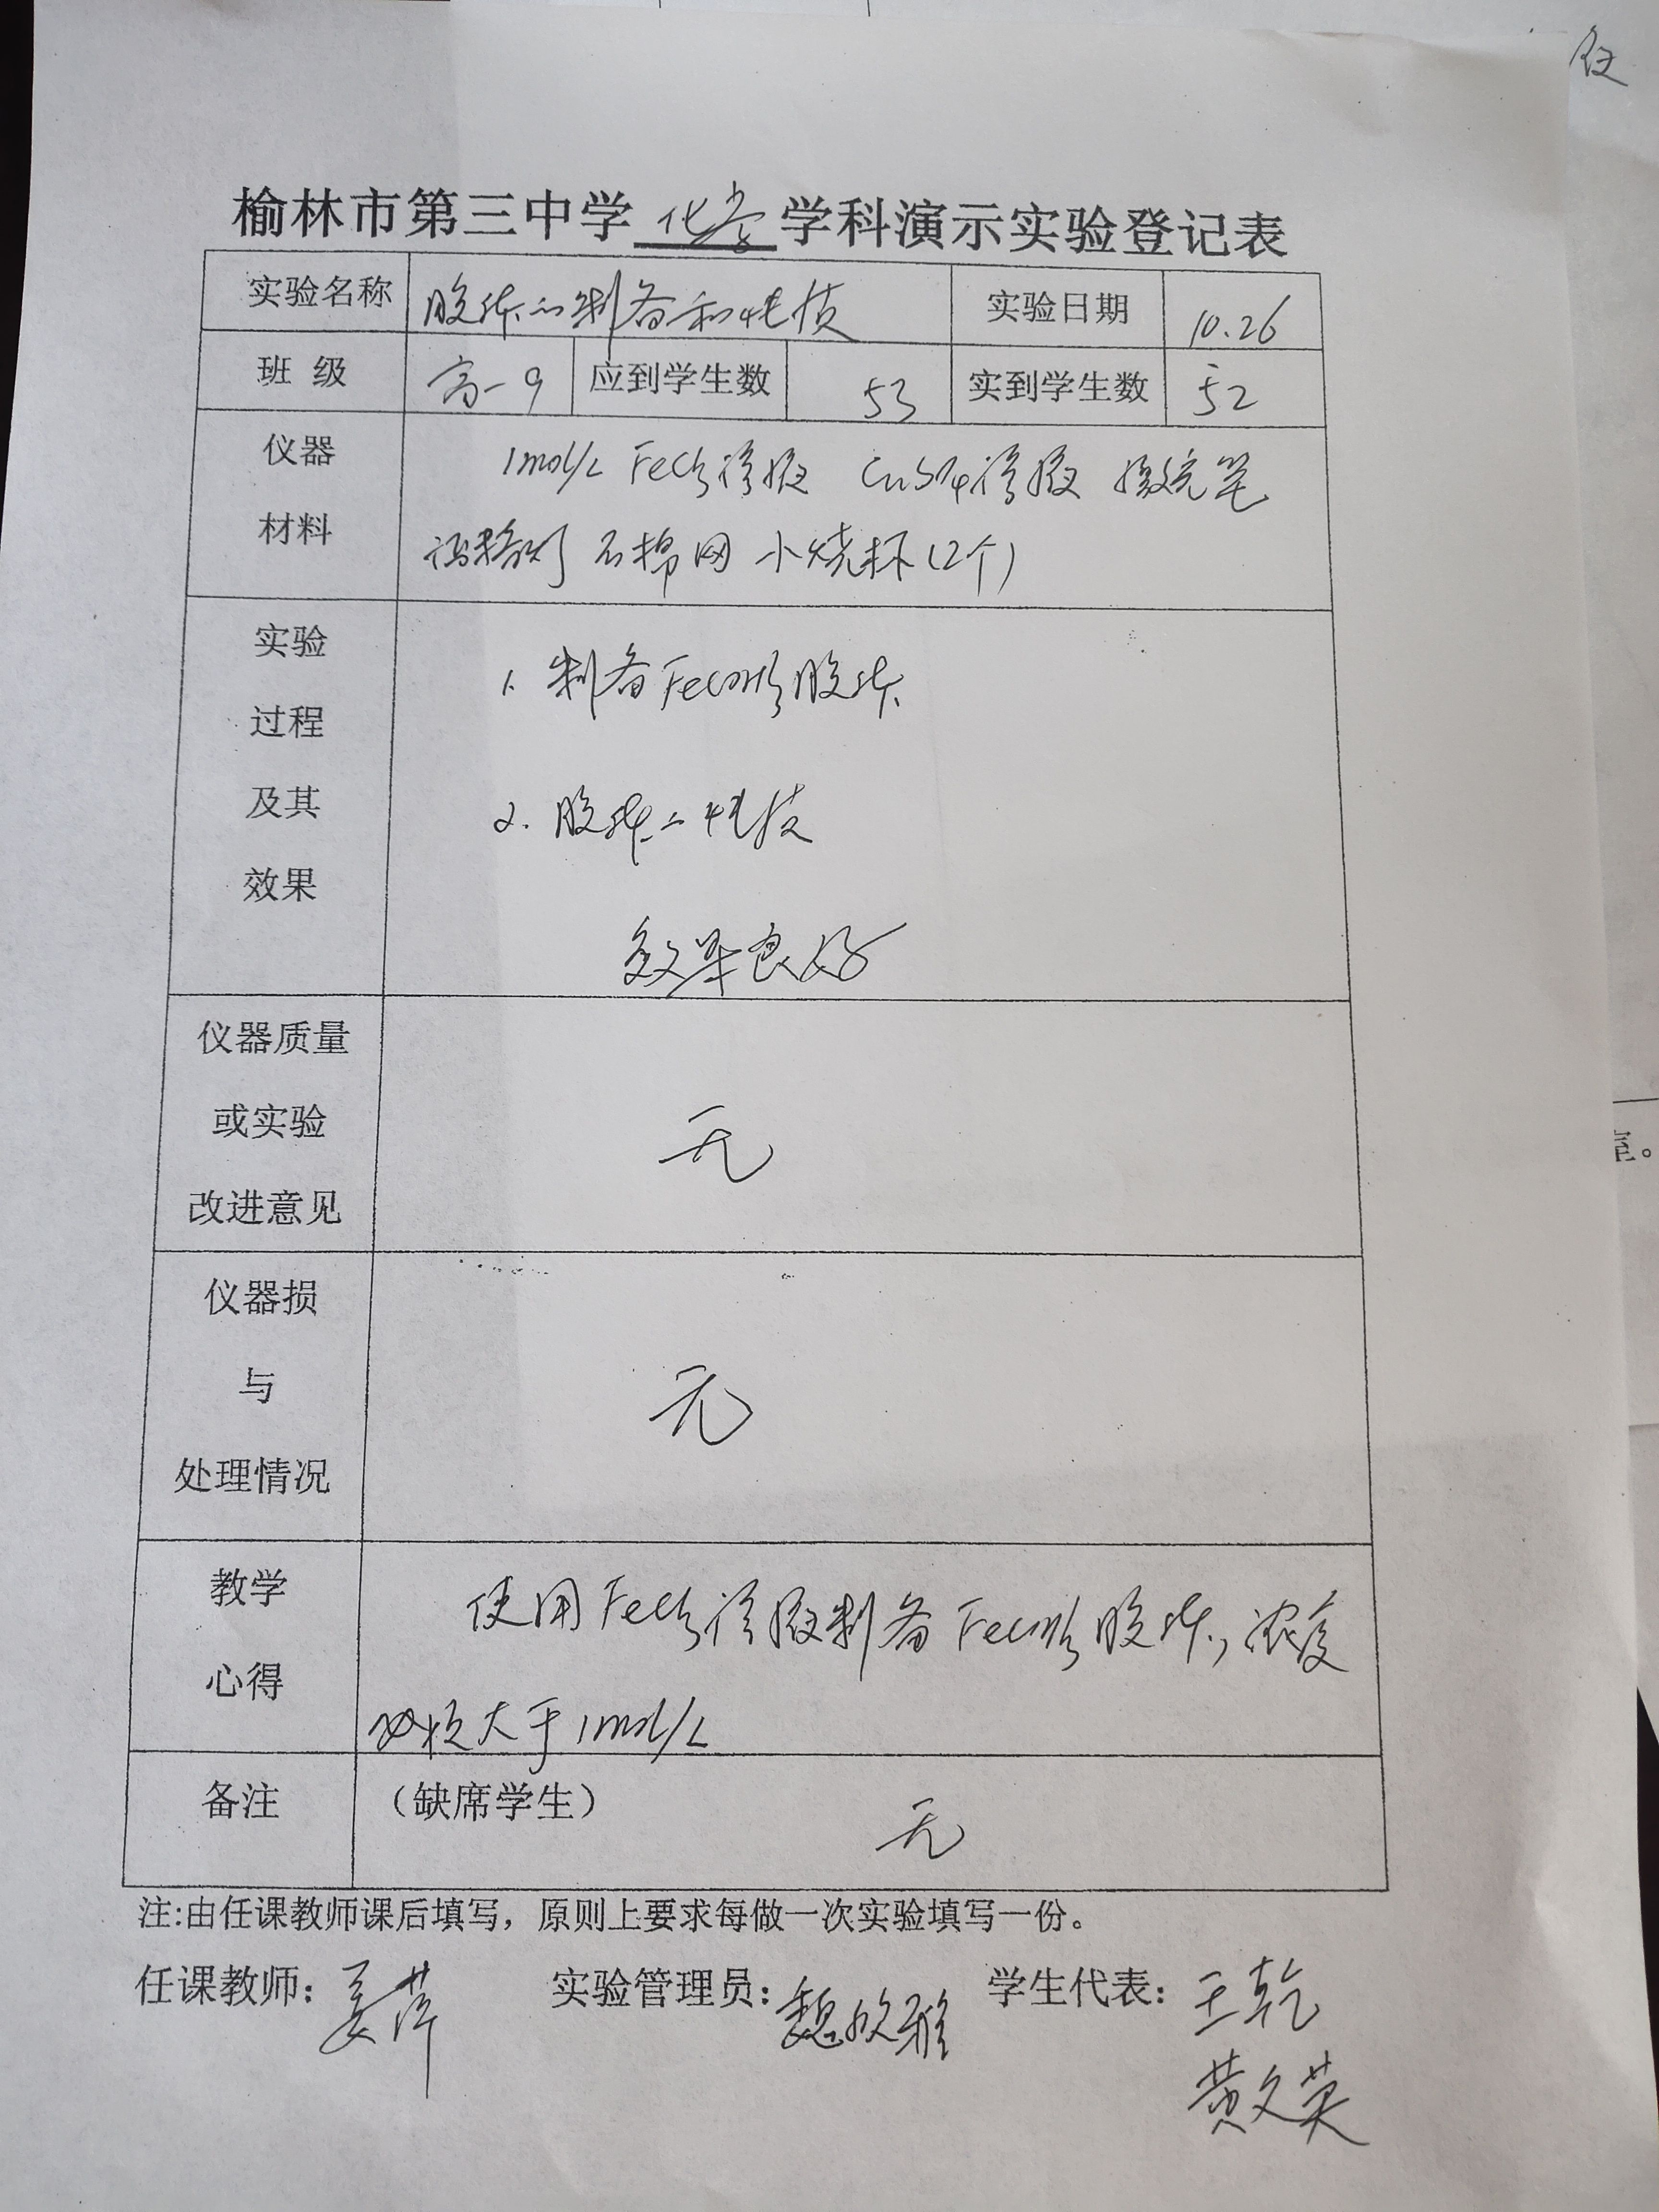 榆林市第三中学 化学 学科演示实验登记表
实验名称 胶体的制备和性质 实验日期 10.26
班 级 高一9 应到学生数 53 实到学生数 52
仪器
材料
1mol/L FeCl₃溶液 CuSO₄溶液 激光笔
酒精灯 石棉网 小烧杯(2个)
实验
过程
及其
效果
1. 制备Fe(OH)₃胶体
2. 胶体的性质
效果良好
仪器质量
或实验
改进意见
无
仪器损
与
处理情况
无
教学
心得
使用FeCl₃溶液制备Fe(OH)₃胶体,浓度
大于1mol/L
备注 （缺席学生） 无
注:由任课教师课后填写，原则上要求每做一次实验填写一份。
任课教师: 姜萍 实验管理员: 魏欣雅 学生代表: 王乾
黄文英